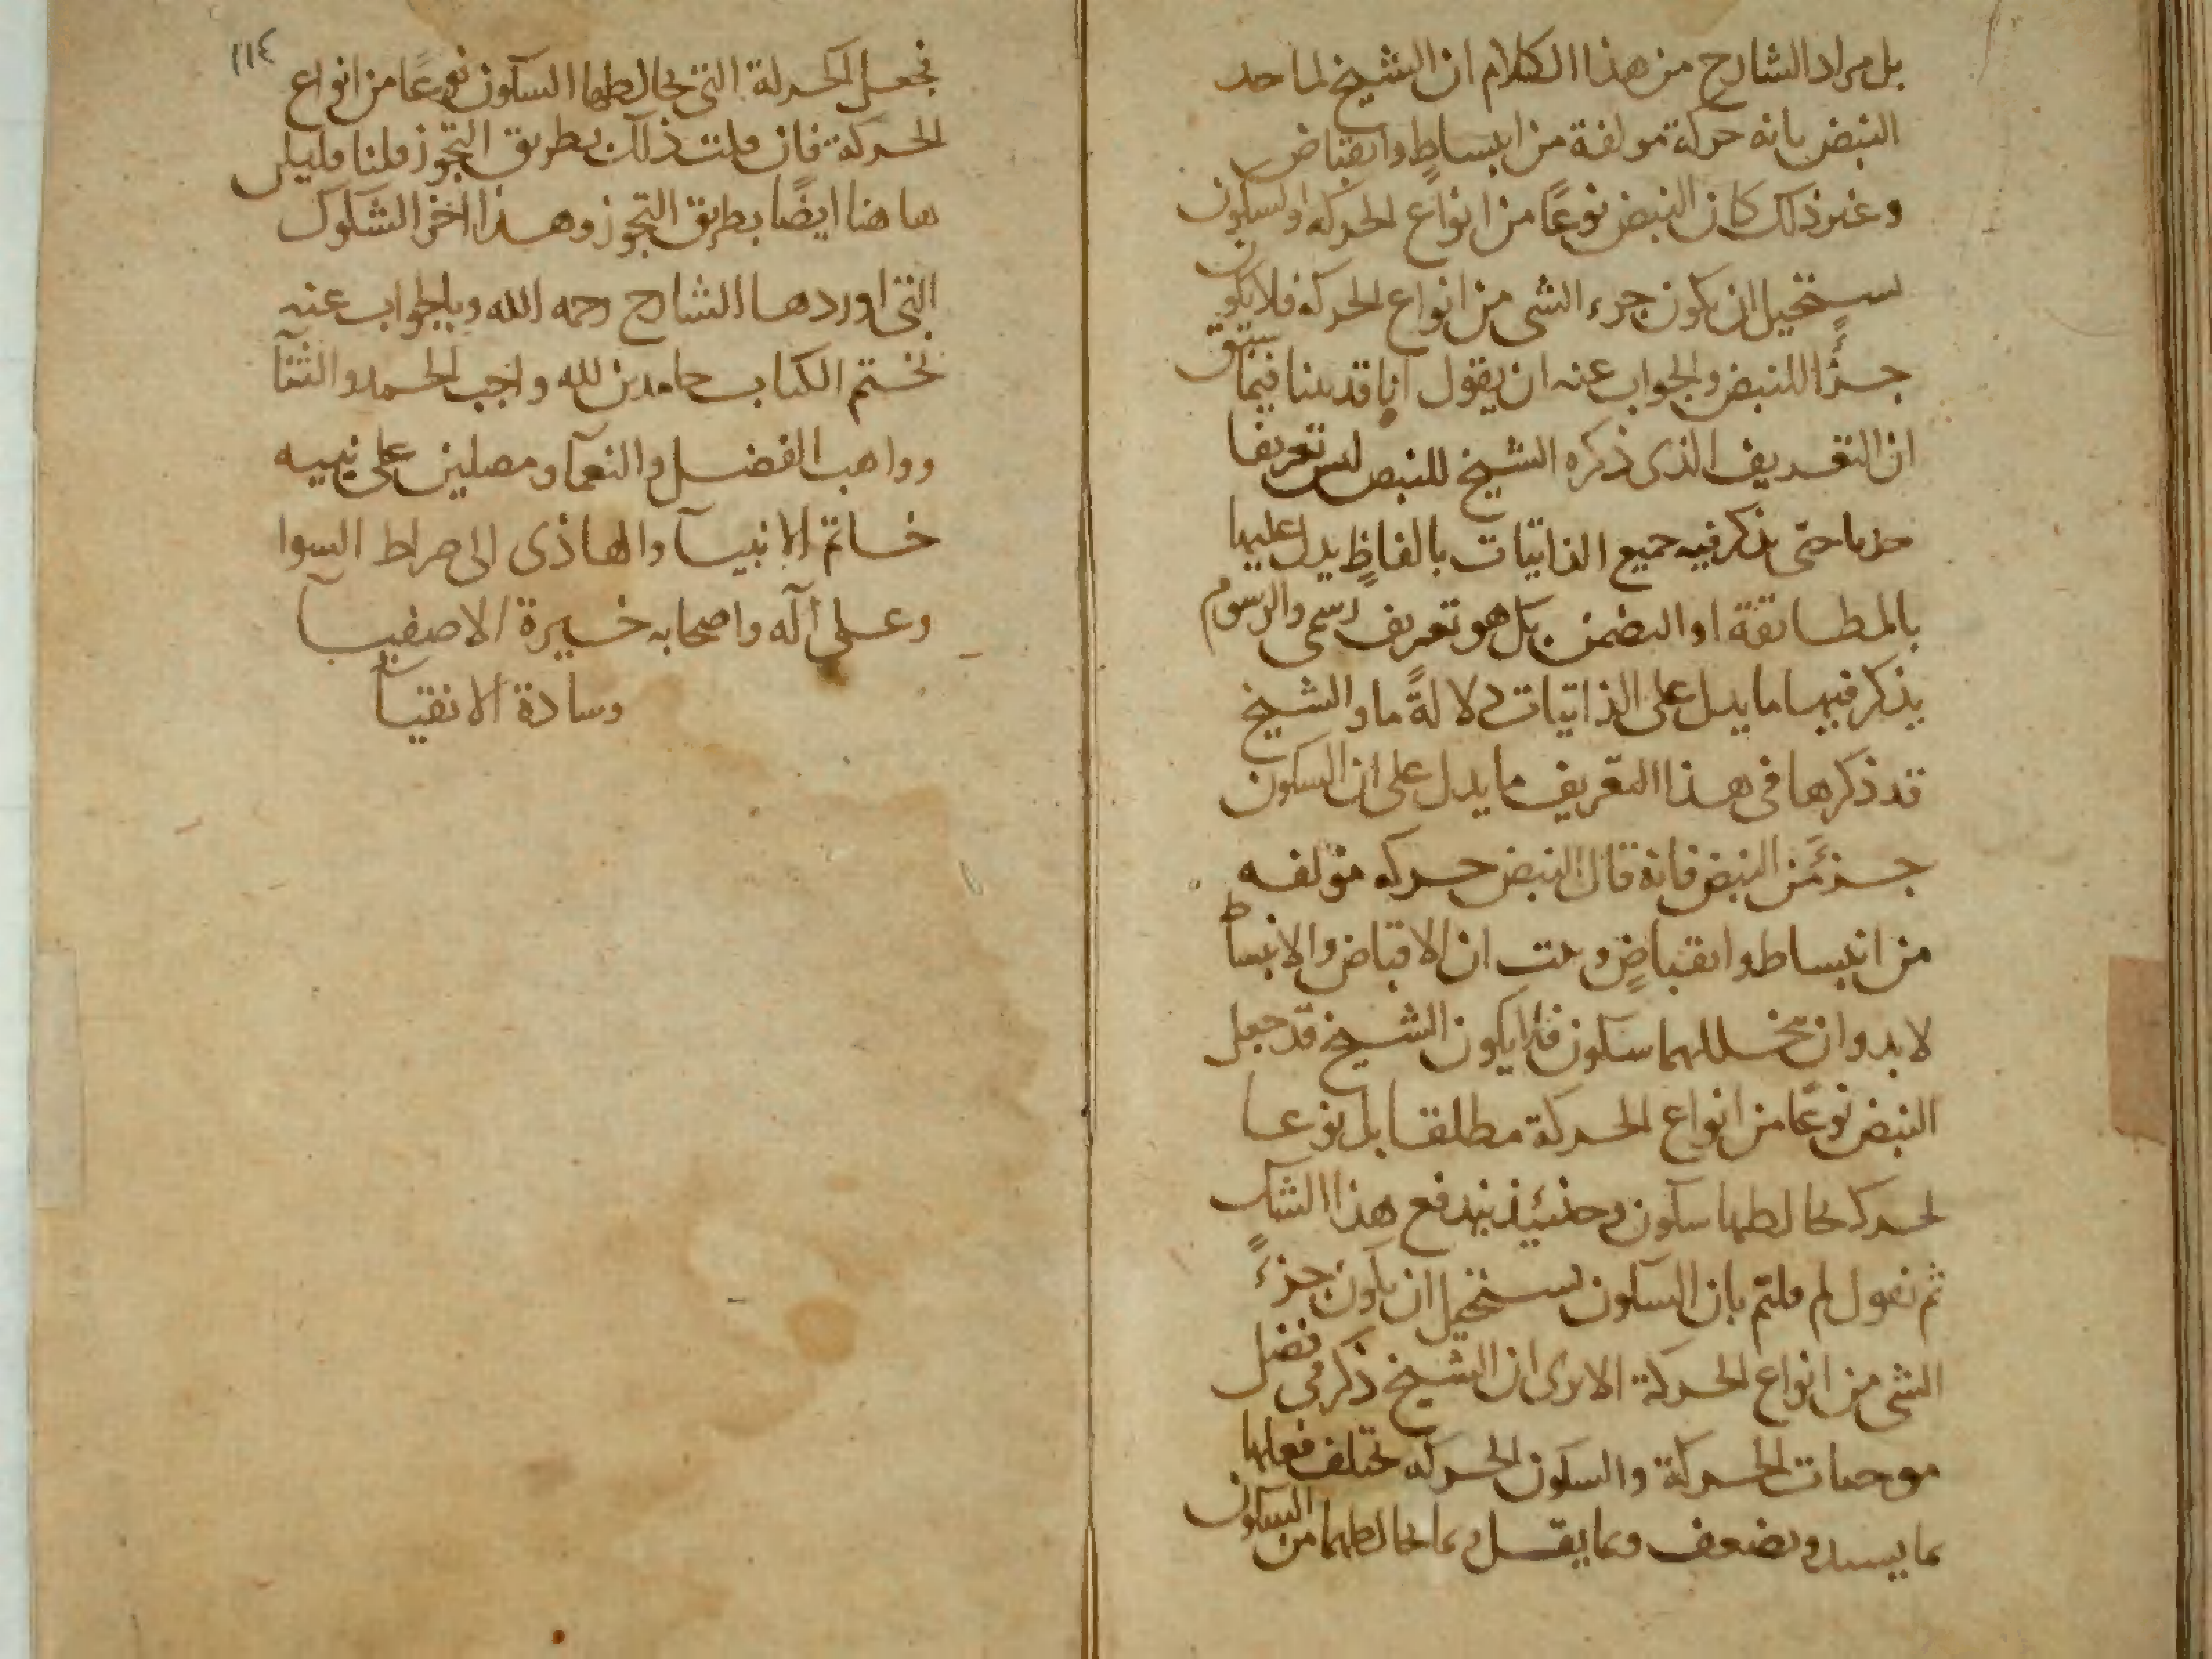 بل مراد الشارح من هذا الكلام ان الشيخ لما حد
النبض بانه حركة مولفة من انبساطٍ وانقباض
وعنى ذلك كان النبض نوعًا من انواع الحركه والسكون
يستحيل ان يكون جزء الشى من انواع الحركه فلا يكون
جزًا للنبض والجواب عنه ان يقول انا قد بينا فيما سبق
ان التعريف الذى ذكره الشيخ للنبض ليس تعريفا
حديا حتى يذكر فيه جميع الذاتيات بالفاظٍ يدل عليها
بالمطابقة او التضمن بل هو تعريف رسمى والرسوم
يذكر فيها ما يدل على الذاتيات دلالةً ما والشيخ
قد ذكرها فى هذا التعريف ما يدل على ان السكون
جزءً من النبض فانه قال النبض حركه مؤلفه
من انبساط وانقباضٍ و ان الانقباض والانبساط
لا بد وان يتخللهما سكون فلا يكون الشيخ قد جعل
النبض نوعًا من انواع الحركة مطلقا بل نوعا
لحركه يخالطها سكون وحينئيذ يندفع هذا الشك
ثم نقول لم قلتم بان السكون يستحيل ان يكون جزءً
الشى من انواع الحركة الا يرى ان الشيخ ذكر فى فصل
موجبات الحركة والسكون الحركه يختلف فعلها
بما يشتد ويضعف وبما يقل وبما يخالطهما من السكون
١١٤
فجعل الحركة التى يخالطها السكون نوعًا من انواع
الحركة فان قلت ذلك بطريق التجوز قلنا فليكن
هاهنا ايضًا بطريق التجوز وهذا اخر الشكوك
التى اوردها الشارح رحمه الله وبالجواب عنه
نختم الكتاب حامدين لله واجب الحمد والثنآ
وواهب الفضل والنعمآ ومصلين على نبيه
خاتم الانبيآ والهاذى الى صراط السوا
وعلى آله واصحابه خيرة الاصفيآ
وسادة الاتقيآ